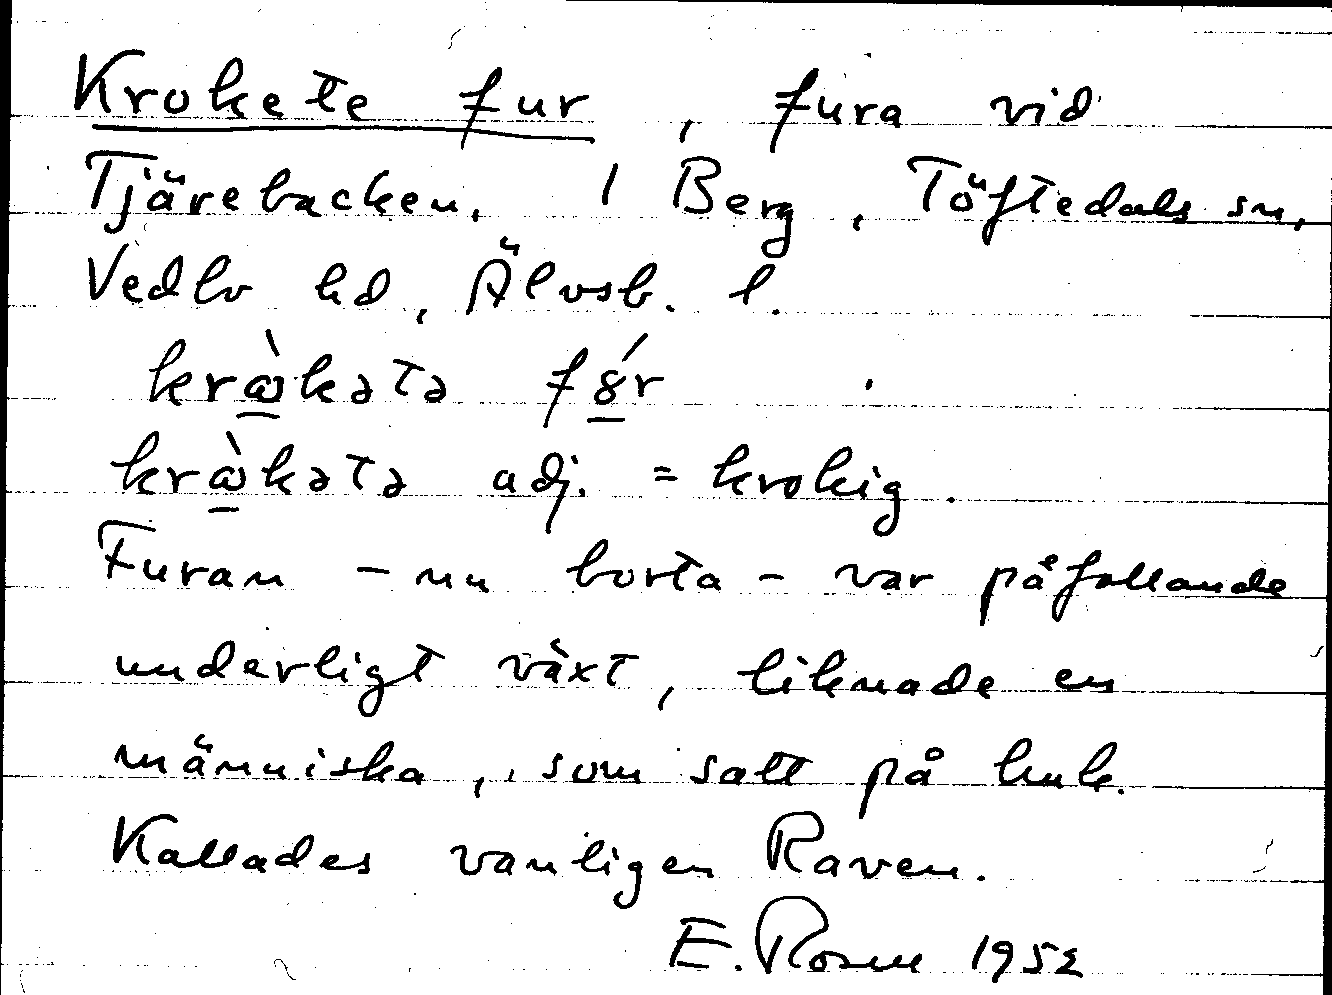 Krokete fur, fura vid
Tjärebacken. 1 Berg, Töftedals sn,
Vedbo hd, Älvsb. l.
krⱥ̀kətə fȣ́r
krⱥ̀kətə adj. = krokig.
Furan – nu borta – var påfallande
underligt växt, liknade en
människa, som satt på huk.
Kallades vanligen Raven.
E. Rosen 1952